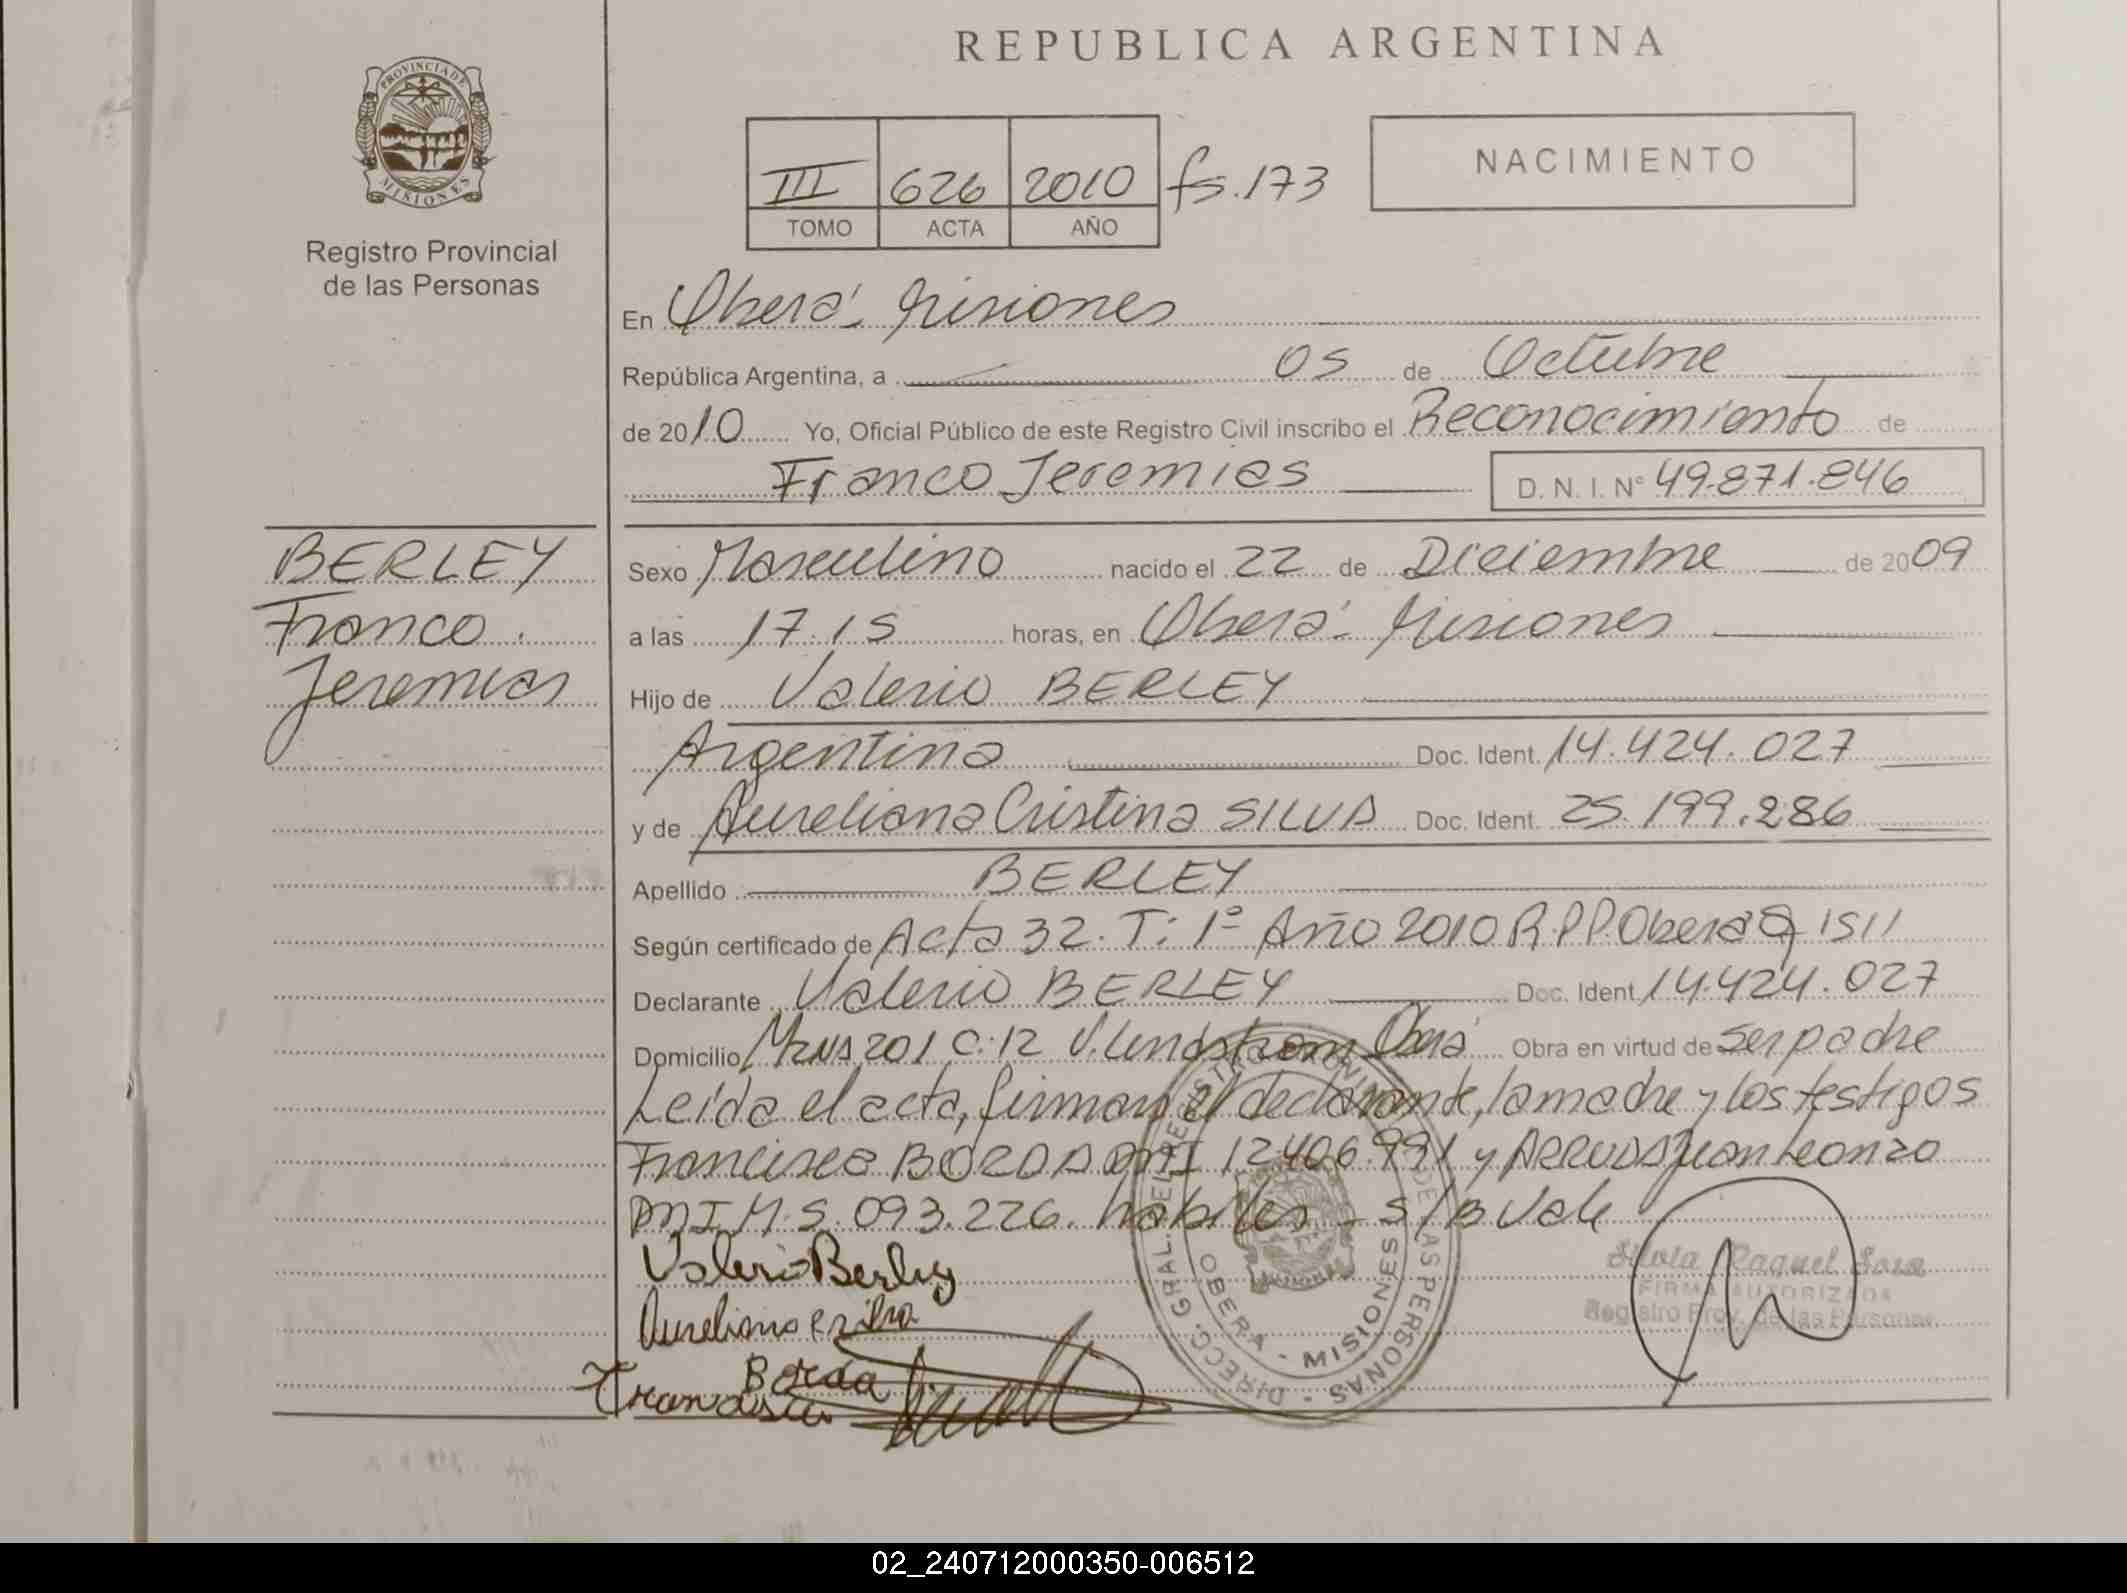 REPUBLICA ARGENTINA
PROVINCIA DE
MISIONES
Registro Provincial
de las Personas
III 626 2010 fs. 173
TOMO ACTA AÑO
NACIMIENTO
En Oberá - Misiones
República Argentina, a 05 de Octubre
de 2010 Yo, Oficial Público de este Registro Civil inscribo el Reconocimiento de
Franco Jeremias D. N. I. Nº 49.871.846
BERLEY
Franco
Jeremias
Sexo Masculino nacido el 22 de Diciembre de 2009
a las 17.15 horas, en Oberá - Misiones
Hijo de Valerio BERLEY
Argentina Doc. Ident. 14.424.027
y de Aureliana Cristina SILVA Doc. Ident. 25.199.286
Apellido BERLEY
Según certificado de Acta 32. T: 1º Año 2010 R.P.P. Oberá 1511
Declarante Valerio BERLEY Doc. Ident 14.424.027
Domicilio 201 C: 12 V. Lindstrom Oberá Obra en virtud de ser padre
Leída el acta, firman el declarante, la madre y los testigos
Francisca BORDA DNI 12406.991 y ARRUDA Juan Leonzo
DNI M. 5.093.226. hábiles - S/B Vale
Valerio Berley
Aureliana C Silva
Borda
Francisca
DIRECC. GRAL. DEL REGISTRO PROVINCIAL DE LAS PERSONAS
OBERA - MISIONES
Silvia Raquel Sosa
FIRMA AUTORIZADA
Registro Prov. de las Personas
02_240712000350-006512